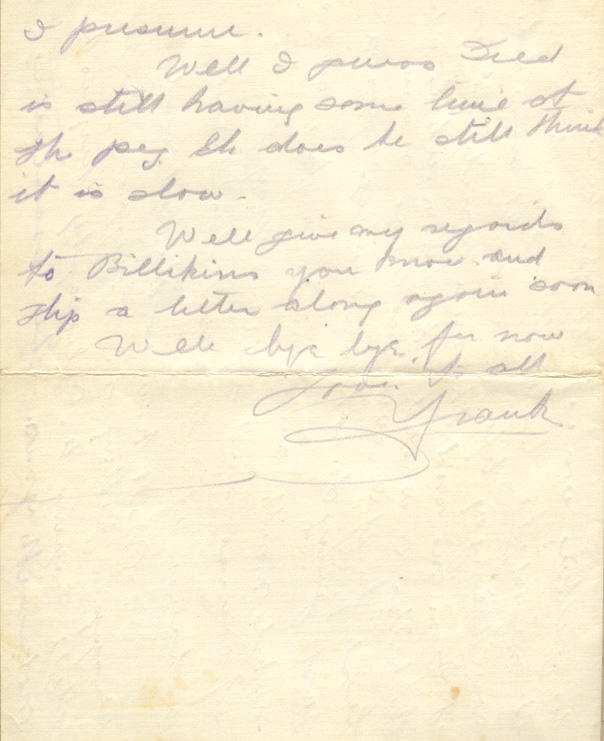 I presume.
Well I guess Fred
is still having some time at
the peg. Eh does he still think
it is slow.
Well give my regards
to Billikins you know and
slip a letter along again soon
Well bye bye. for now
Love to all
Frank